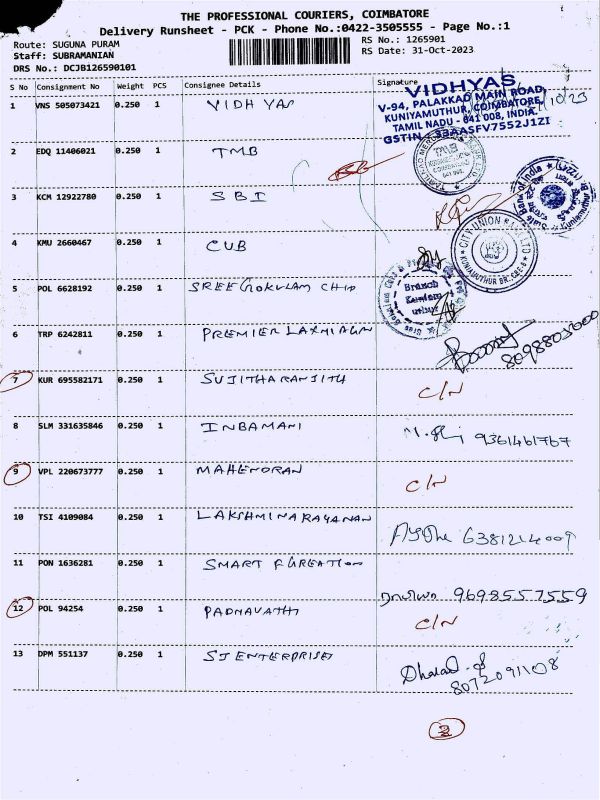 THE PROFESSIONAL COURIERS, COIMBATORE
Delivery Runsheet - PCK - Phone No.:0422-3505555 - Page No.:1
Route: SUGUNA PURAM
Staff: SUBRAMANIAN
DRS No.: DCJB126590101
RS No.: 1265901
RS Date: 31-Oct-2023
S No Consignment No Weight PCS Consignee Details Signature
VIDHYAS
V-94, PALAKKAD MAIN ROAD,
KUNIYAMUTHUR, COIMBATORE,
TAMIL NADU - 641 008, INDIA.
GSTIN : 33AASFV7552J1ZI
1 VNS 505073421 0.250 1 VIDHYAS
2 EDQ 11406021 0.250 1 TMB
3 KCM 12922780 0.250 1 SBI
4 KMU 2660467 0.250 1 CUB
CITY UNION BANK LTD
KUNIYAMUTHUR BR., CBE-8
5 POL 6628192 0.250 1 SREE GOKULAM CHIT
Branch
6 TRP 6242811 0.250 1 PREMIER LAXMI
7 KUR 695582171 0.250 1 SUJITHARANJITH C/N
8 SLM 331635846 0.250 1 INBAMANI 9361461767
9 VPL 220673777 0.250 1 MAHENDRAN C/N
10 TSI 4109084 0.250 1 LAKSHMINARAYANAN 6381214009
11 PON 1636281 0.250 1 SMART 9698557559
12 POL 94254 0.250 1 PADMAVATHI C/N
13 DPM 551137 0.250 1 SJ ENTERPRISES 8072091108
2